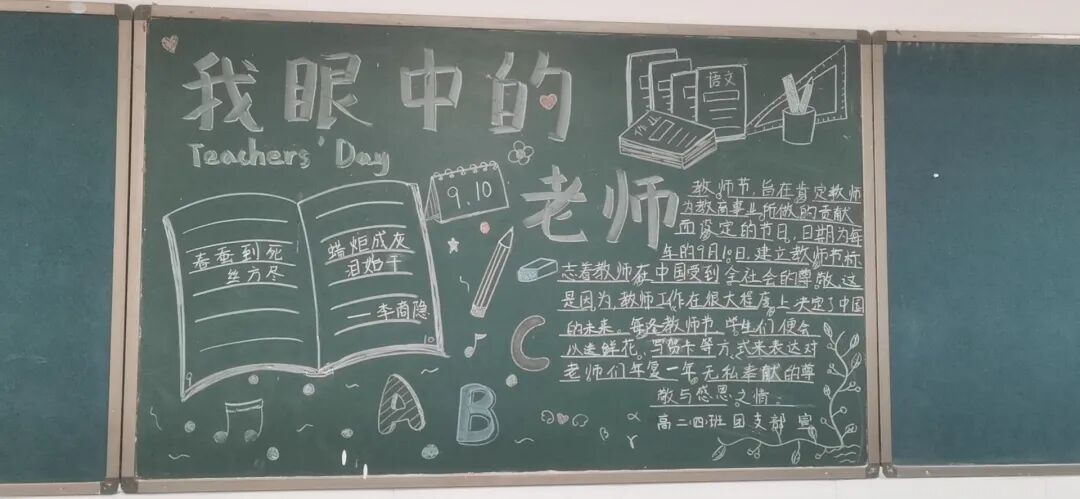 我眼中的
Teachers' Day
老师
语文
9.10
春蚕到死
丝方尽
蜡炬成灰
泪始干
—李商隐
9
10
教师节,旨在肯定教师
为教育事业所做的贡献
而设定的节日,日期为每
年的9月10日.建立教师节标
志着教师在中国受到全社会的尊敬.这
是因为,教师工作在很大程度上决定了中国
的未来。每逢教师节,学生们便会
以送鲜花、写贺卡等方式来表达对
老师们年复一年无私奉献的尊
敬与感恩之情。
高二四班团支部 宣
A B C